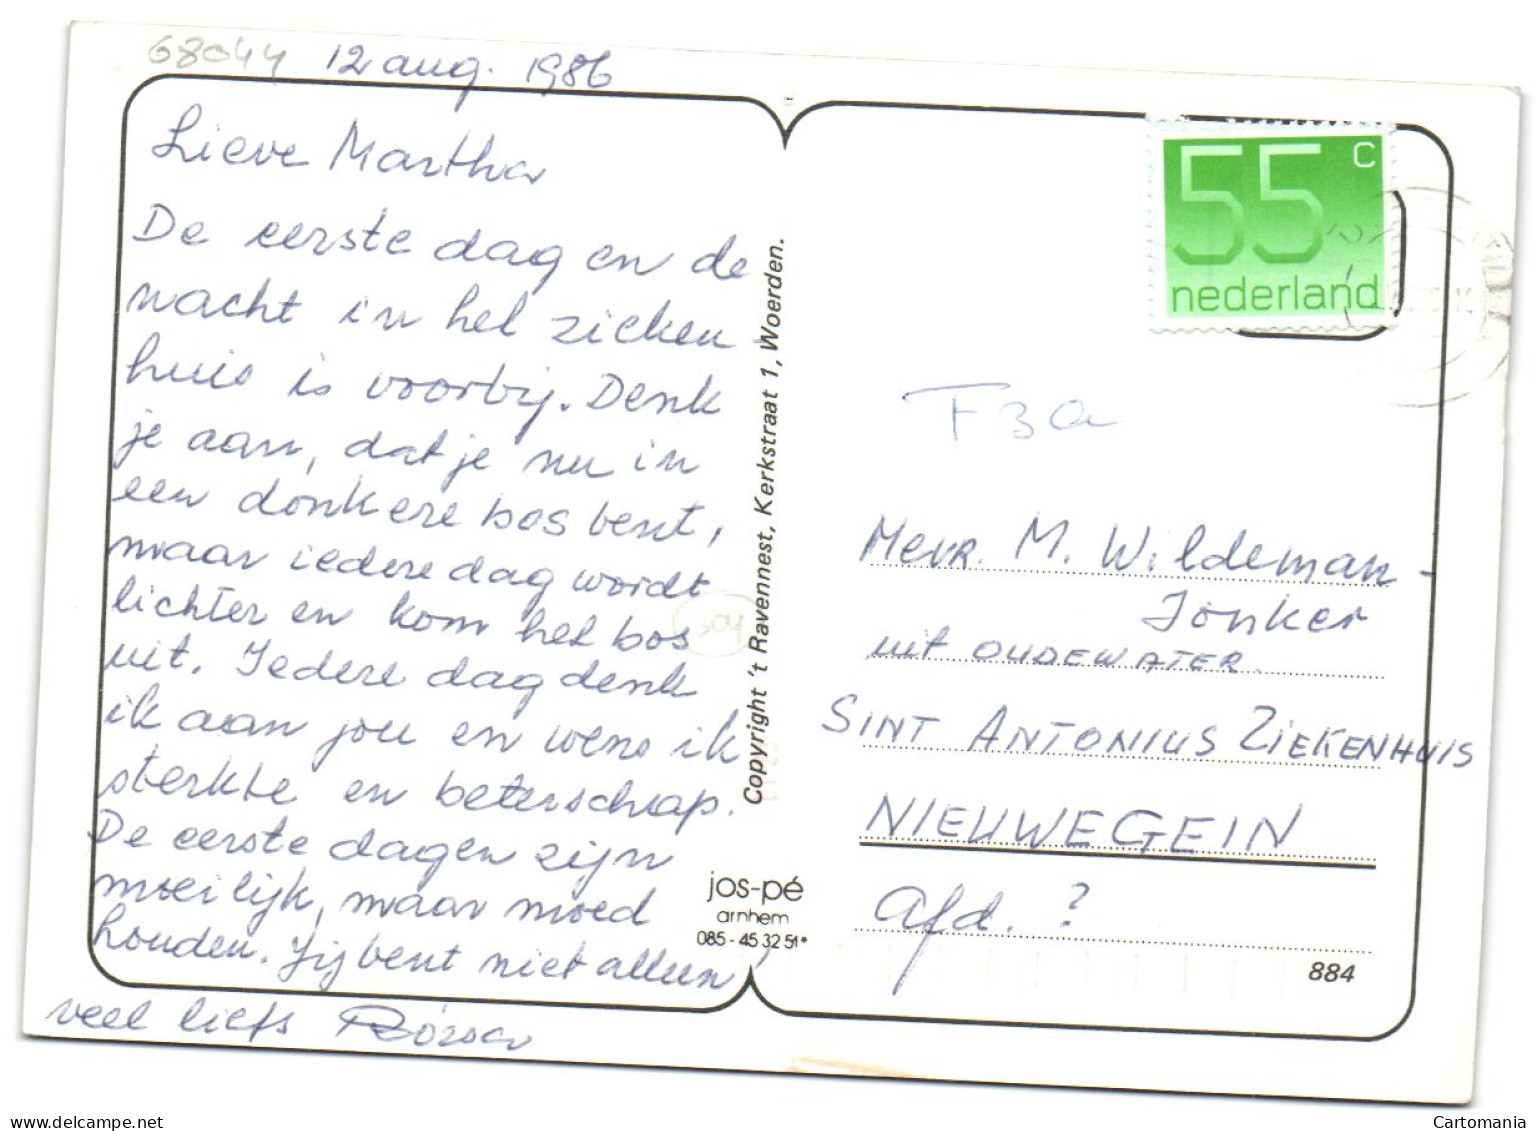 68044 12 aug. 1986
Lieve Martha
De eerste dag en de
nacht in het zieken-
huis is voorbij. Denk
je aan, dat je nu in
een donkere bos bent,
maar iedere dag wordt
lichter en kom het bos
uit. Iedere dag denk
ik aan jou en wens ik
sterkte en beterschap.
De eerste dagen zijn
moeilijk, maar moed
houden. Jij bent niet alleen,
veel liefs Rózsa
304
Copyright 't Ravennest, Kerkstraat 1, Woerden.
jos-pé
arnhem
085-453251*
55 c
nederland
F3a
Mevr. M. Wildeman-
Jonker
uit OUDEWATER.
SINT ANTONIUS ZIEKENHUIS
NIEUWEGEIN
Afd. ?
884
Cartomania
delcampe.net